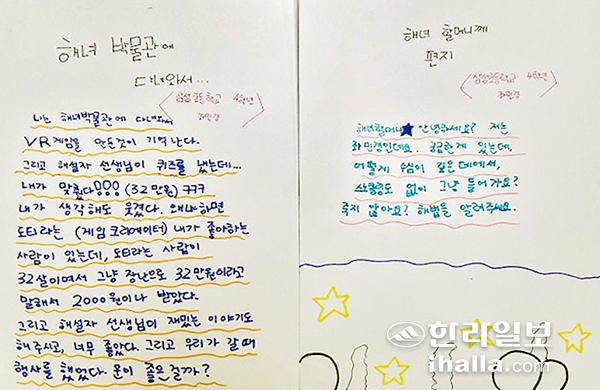 해녀 박물관에
다녀와서...
삼성초등학교 4학년
나는 해녀박물관에 다녀와서
VR게임을 만든것이 기억난다.
그리고 해설자 선생님이 퀴즈를 냈는데...
내가 맞췄다!!! (32만원) ㅋㅋㅋ
내가 생각해도 웃겼다. 왜냐하면
도티라는 (게임 크리에이터) 내가 좋아하는
사람이 있는데, 도티라는 사람이
32살이여서 그냥 장난으로 32만원이라고
말해서 2000원이나 받았다.
그리고 해설자 선생님이 재밌는 이야기도
해주시고, 너무 좋았다. 그리고 우리가 갈 때
행사를 했었다. 운이 좋은 걸까?
해녀 할머니께
편지
삼성초등학교 4학년
해녀할머니 안녕하세요? 저는
민경인데요. 궁금한게 있는데,
어떻게 수심이 깊은데에서,
산소통도 없이 그냥 들어가요?
죽지 않아요? 해법을 알려주세요.
한라일보
ihalla.com